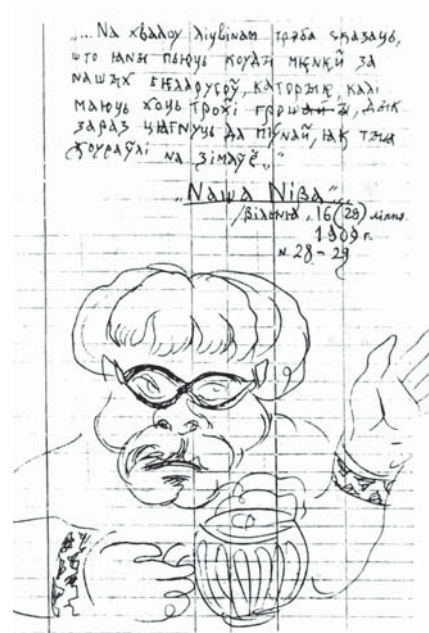 „... На хвалоу ліцвінам трэба сказаць,
што яны пьюць коуды меней за
нашых беларусоў, каторые, калі
маюць хоць трохі грошай, дык
зараз цягнуць да піўнай, як тыя
жоураўлі на зімаўё..“
„Наша Ніва“..
/Вільня, 16(29) ліпня
1909 г.
N 28-29